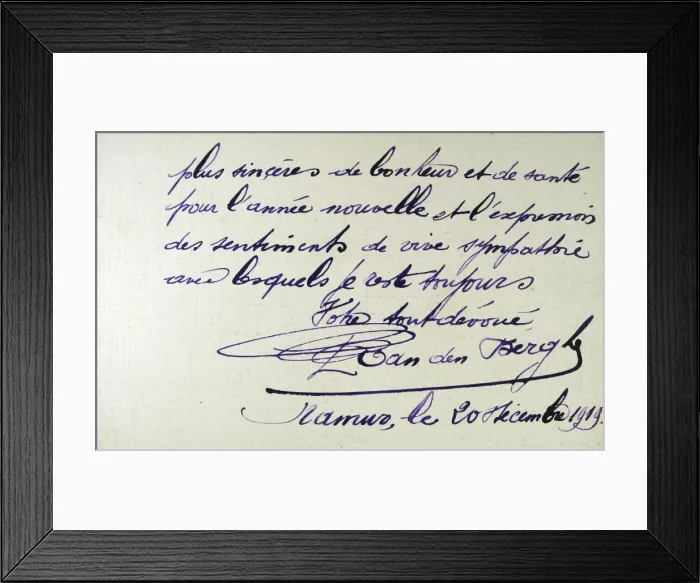 plus sincères de bonheur et de santé
pour l'année nouvelle et l'expression
des sentiments de vive sympathie
avec lesquels je reste toujours
Votre tout dévoué,
Van den Bergh
Namur, le 20 Décembre 1919.